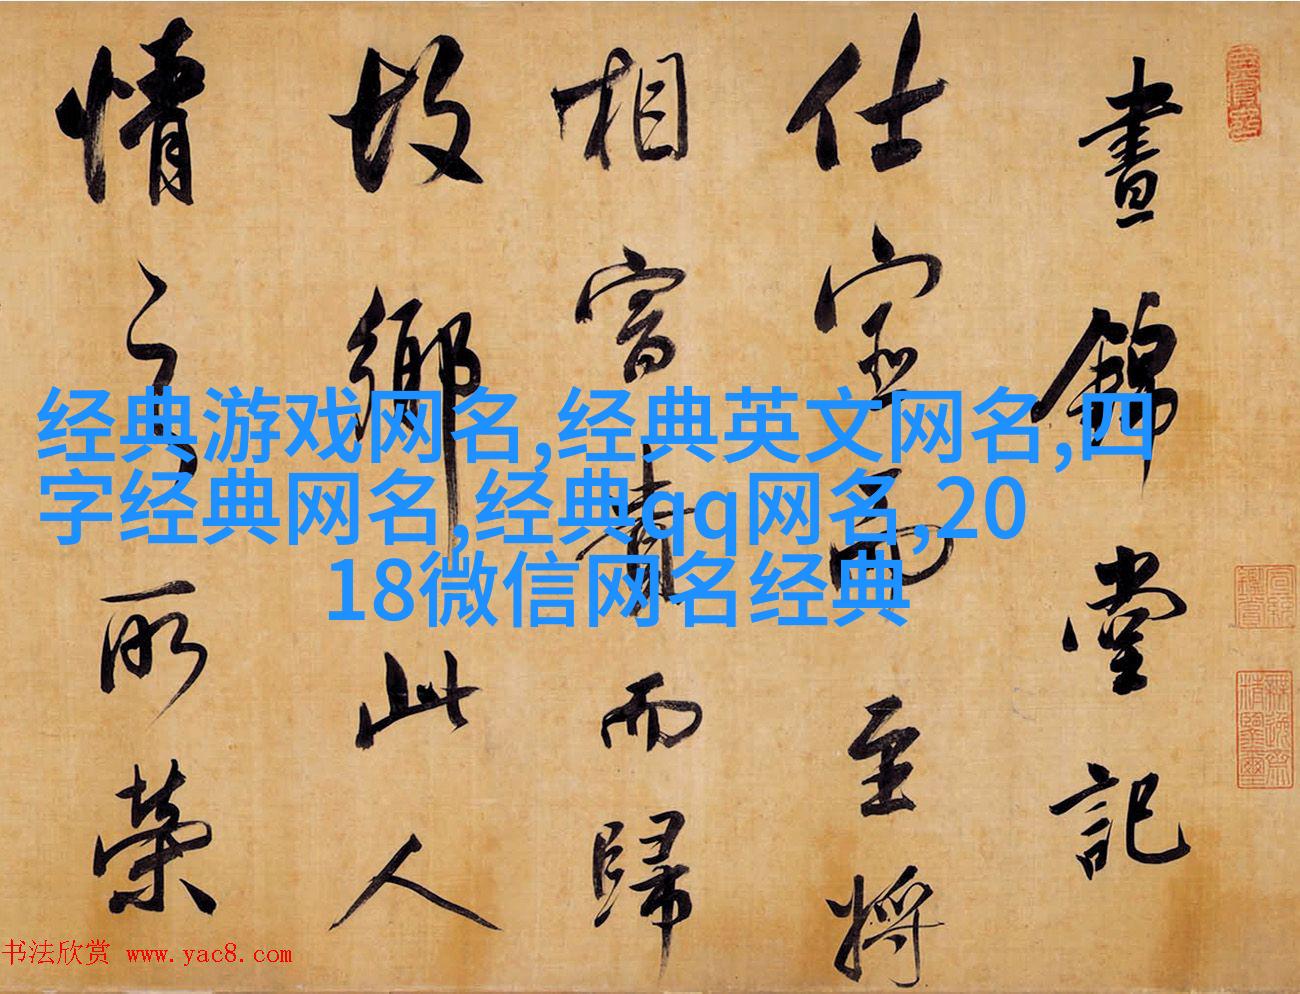 晝錦堂記
仕宦而至將
相富貴而歸
故鄉此人
情之所榮
经典游戏网名,经典英文网名,四
字经典网名,经典qq网名,20
18微信网名经典
书法欣赏 www.yac8.com